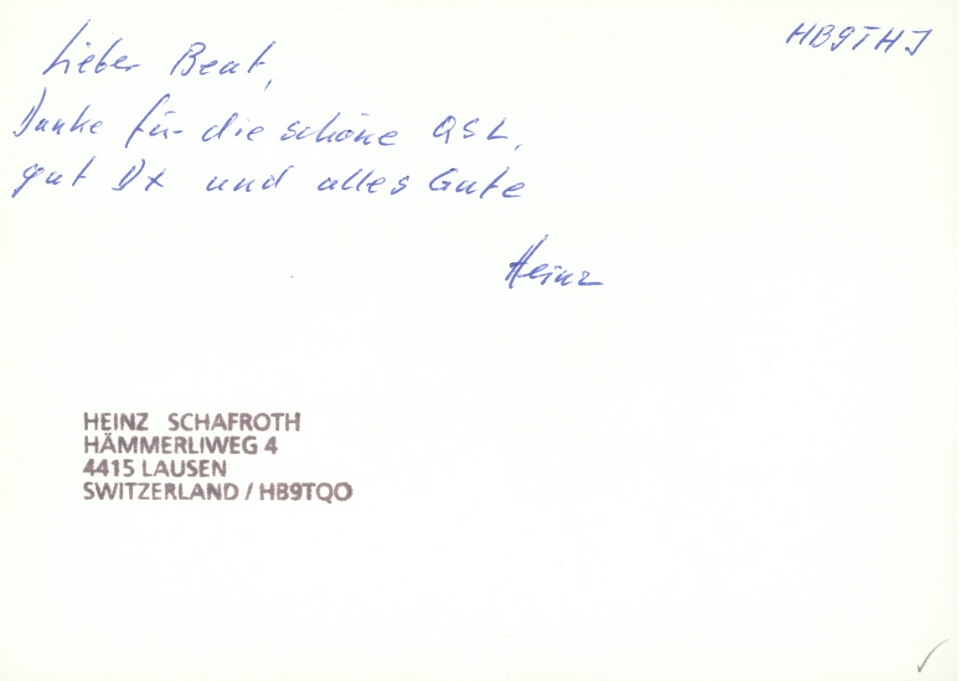 HB9THJ
Lieber Beat,
Danke für die schöne QSL,
gut DX und alles Gute
Heinz
HEINZ SCHAFROTH
HÄMMERLIWEG 4
4415 LAUSEN
SWITZERLAND / HB9TQO